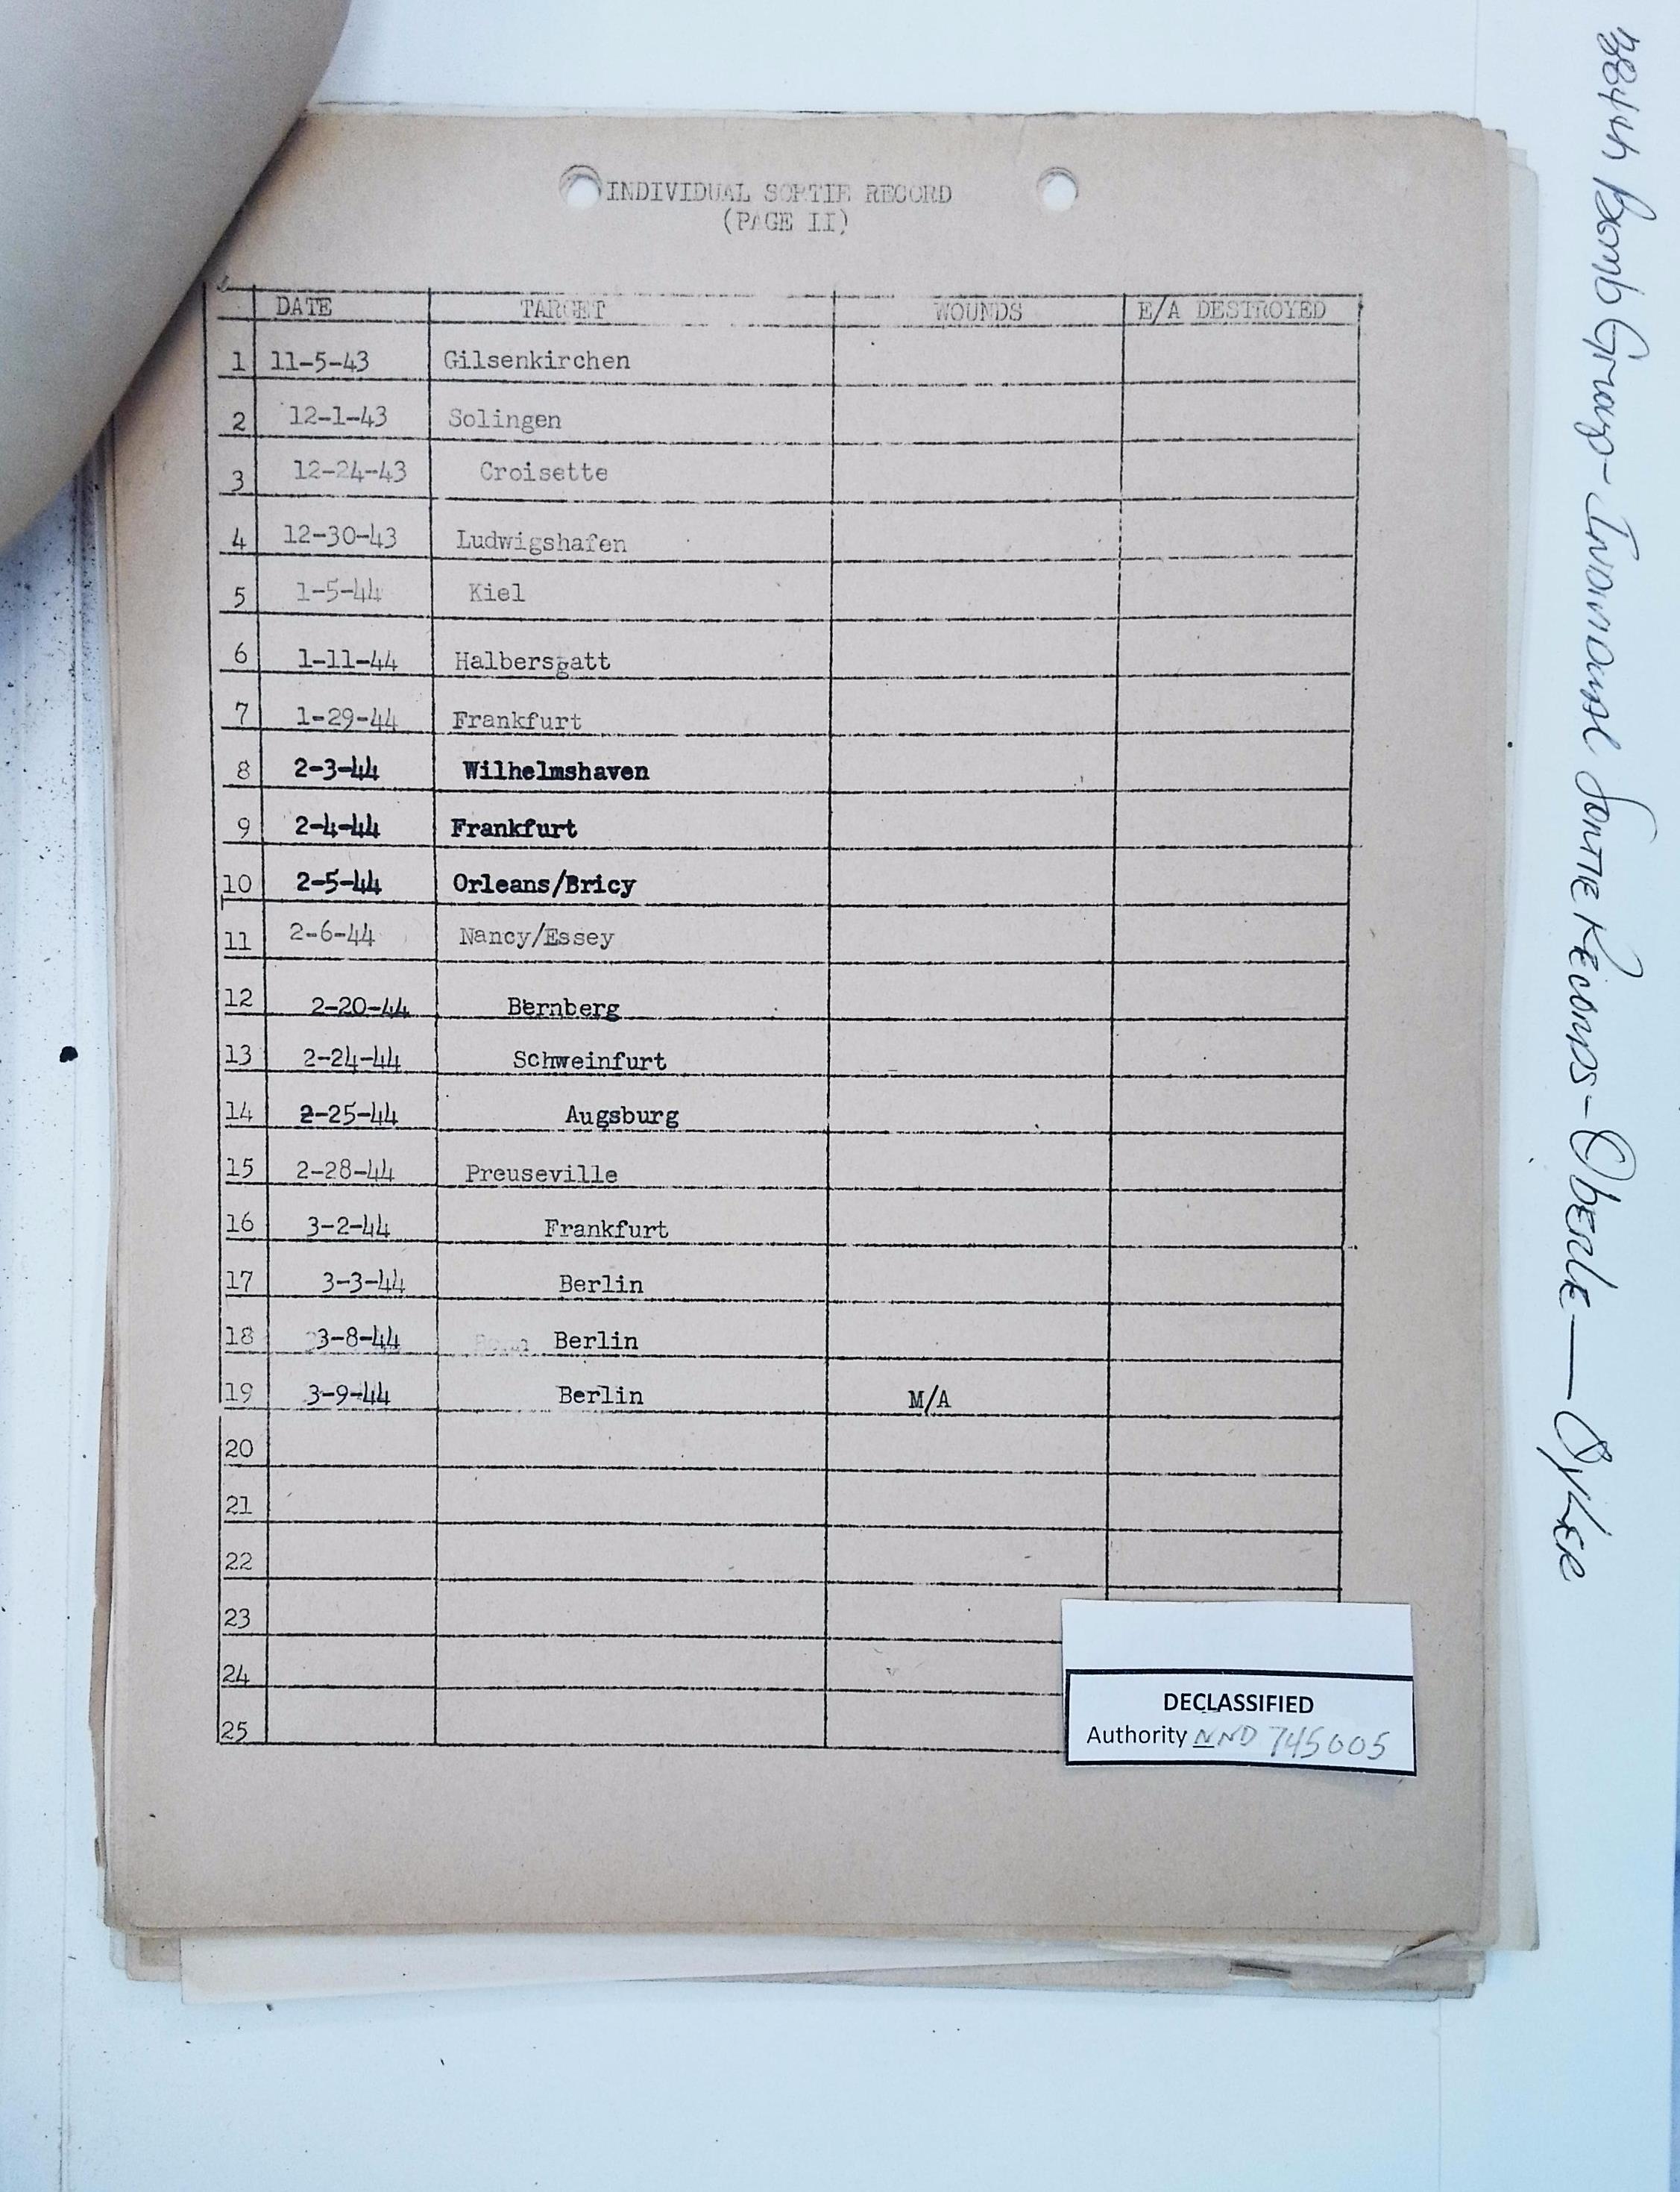 INDIVIDUAL SORTIE RECORD
(PAGE II)
DATE TARGET WOUNDS E/A DESTROYED
1 11-5-43 Gilsenkirchen
2 12-1-43 Solingen
3 12-24-43 Croisette
4 12-30-43 Ludwigshafen
5 1-5-44 Kiel
6 1-11-44 Halbersgatt
7 1-29-44 Frankfurt
8 2-3-44 Wilhelmshaven
9 2-4-44 Frankfurt
10 2-5-44 Orleans/Bricy
11 2-6-44 Nancy/Essey
12 2-20-44 Bernberg
13 2-24-44 Schweinfurt
14 2-25-44 Augsburg
15 2-28-44 Preuseville
16 3-2-44 Frankfurt
17 3-3-44 Berlin
18 3-8-44 Berlin
19 3-9-44 Berlin M/A
20
21
22
23
24
25
DECLASSIFIED
Authority NND 745005
384th Bomb Group - Individual Sortie Records - Oberle — Oyler